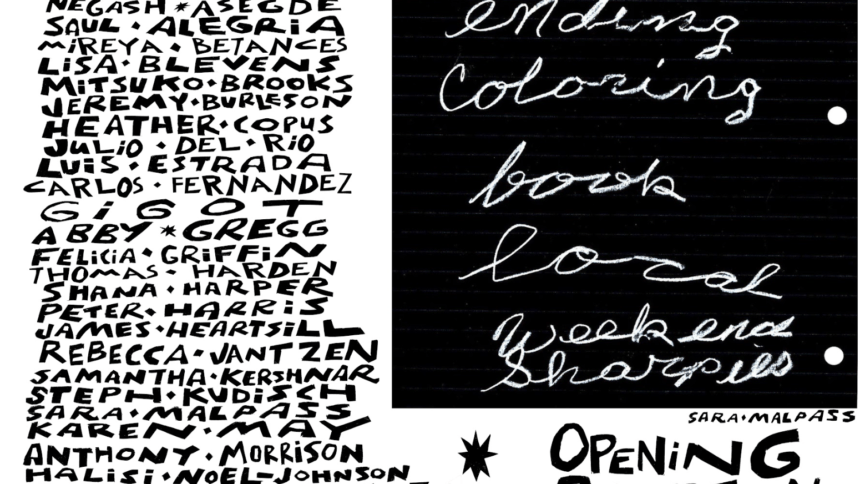 NEGASH * ASEGDE
SAUL · ALEGRIA
MiREYA · BETANCES
LiSA · BLEVENS
MiTSUKO · BROOKS
JEREMY · BURLESON
HEATHER · COPUS
JULiO · DEL · RiO
LUiS · ESTRADA
CARLOS · FERNANDEZ
GiGOT
ABBY * GREGG
FELiCiA · GRiFFiN
THOMAS · HARDEN
SHANA · HARPER
PETER · HARRiS
JAMES · HEARTSiLL
REBECCA · JANTZEN
SAMANTHA · KERSHNAR
STEPH · KUDiSCH
SARA · MALPASS
KAREN · MAY
ANTHONY · MORRiSON
HALiSi · NOEL-JOHNSON
ending
Coloring
book
local
weekend
Sharpies
SARA · MALPASS
OPENiNG